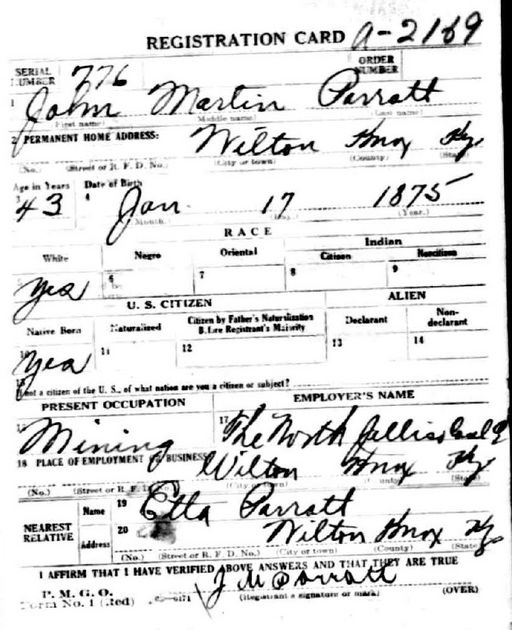 REGISTRATION CARD A-2169
SERIAL NUMBER 776 ORDER NUMBER
1 John Martin Parratt
(First name) (Middle name) (Last name)
2 PERMANENT HOME ADDRESS: Wilton Knox Ky.
(No.) (Street or R. F. D. No.) (City or town) (County) (State)
Age in Years Date of Birth
3 43 4 Jan 17 1875
(Month.) (Day.) (Year.)
RACE
White Negro Oriental Indian
Citizen Noncitizen
Yes 6 7 8 9
U. S. CITIZEN ALIEN
Native Born Naturalized Citizen by Father's Naturalization Before Registrant's Majority Declarant Non-declarant
10 Yes 11 12 13 14
15 If not a citizen of the U. S., of what nation are you a citizen or subject?
PRESENT OCCUPATION EMPLOYER'S NAME
Mining 17 The North Jellico Coal Co
18 PLACE OF EMPLOYMENT OR BUSINESS Wilton Knox Ky
(No.) (Street or R. F. D. (County) (State)
NEAREST RELATIVE
Name 19 Etta Parratt
Address 20 Wilton Knox Ky.
(No.) (Street or R. F. D. No.) (City or town) (County) (State)
I AFFIRM THAT I HAVE VERIFIED ABOVE ANSWERS AND THAT THEY ARE TRUE
P. M. G. O.
Form No. 1 (Red) J M Parratt
(Registrant's signature or mark) (OVER)